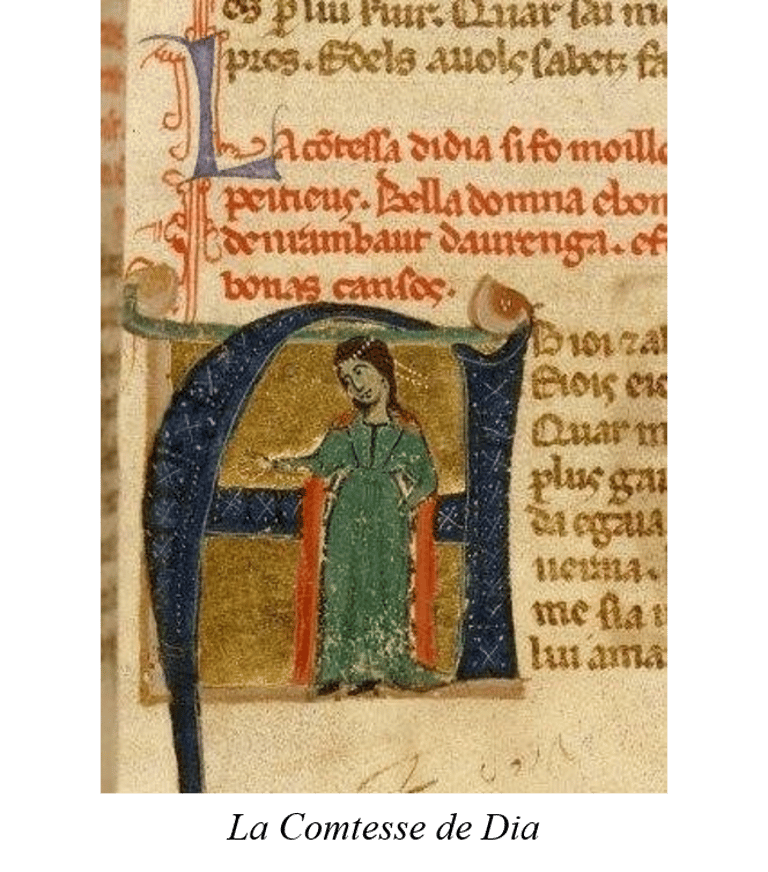 es p lui fuir. Quar sai me
pros. Edels auols sabetz fa
La cōtessa didia si fo moille
peitieus. Bella domna ebon
denrambaut daurenga. ef
bonas cansos.
A
D ioi 7 al
Eiois eio
Quar m
plus gai
da egaia
ueraia.
me sia u
lui ama
La Comtesse de Dia